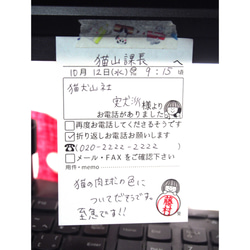 猫山課長 へ
10月12日(水) 9:15
猫犬山社
様より
お電話がありました
再度お電話くださるそうです
折り返しお電話お願いします
(020-2222-2222)
メール・FAXをご確認下さい
用件・memo
猫の肉球の色に
ついてだそうです。
至急です!!
藤村